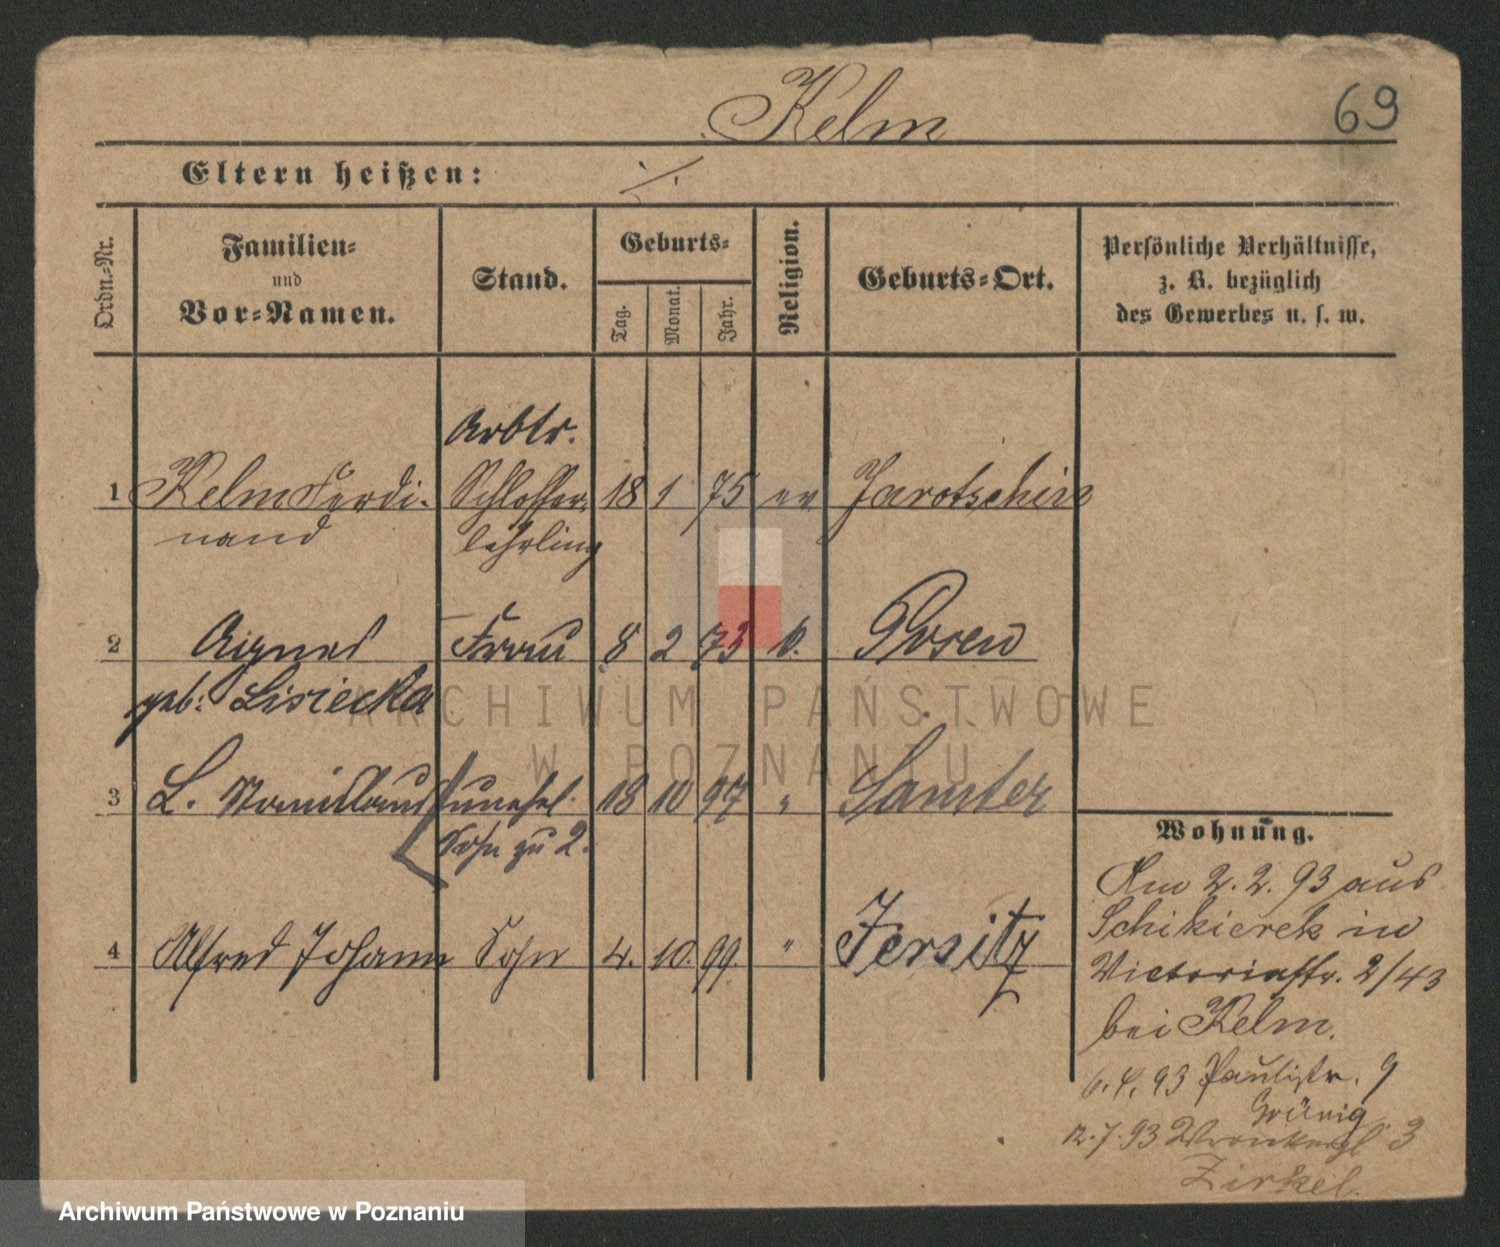 Kelm
69
Eltern heißen:
Ordn.-Nr.
Familien-
und
Vor-Namen.
Stand.
Geburts-
Tag.
Monat.
Jahr.
Religion.
Geburts-Ort.
Persönliche Verhältnisse,
z. B. bezüglich
des Gewerbes u. s. w.
Arbtr.
1 Kelm Ferdi- Schlosser- 18 1 75 ev Jarotschin
nand lehrling
2 Agnes Frau 8 2 73 k. Posen
geb: Lisiecka
3 L. Stanislaus unehel. 18 10 97 " Samter
Sohn zu 2.
4 Alfred Johann Sohn 4. 10. 99. " Jersitz
Wohnung.
Am 2. 2. 93 aus
Schikierek in
Victoriastr. 2/43
bei Kelm.
6. 4. 93 Paulistr. 9
12. 7. 93 Wronkerpl 3
Zirkel.
ARCHIWUM PAŃSTWOWE
W POZNANIU
Archiwum Państwowe w Poznaniu